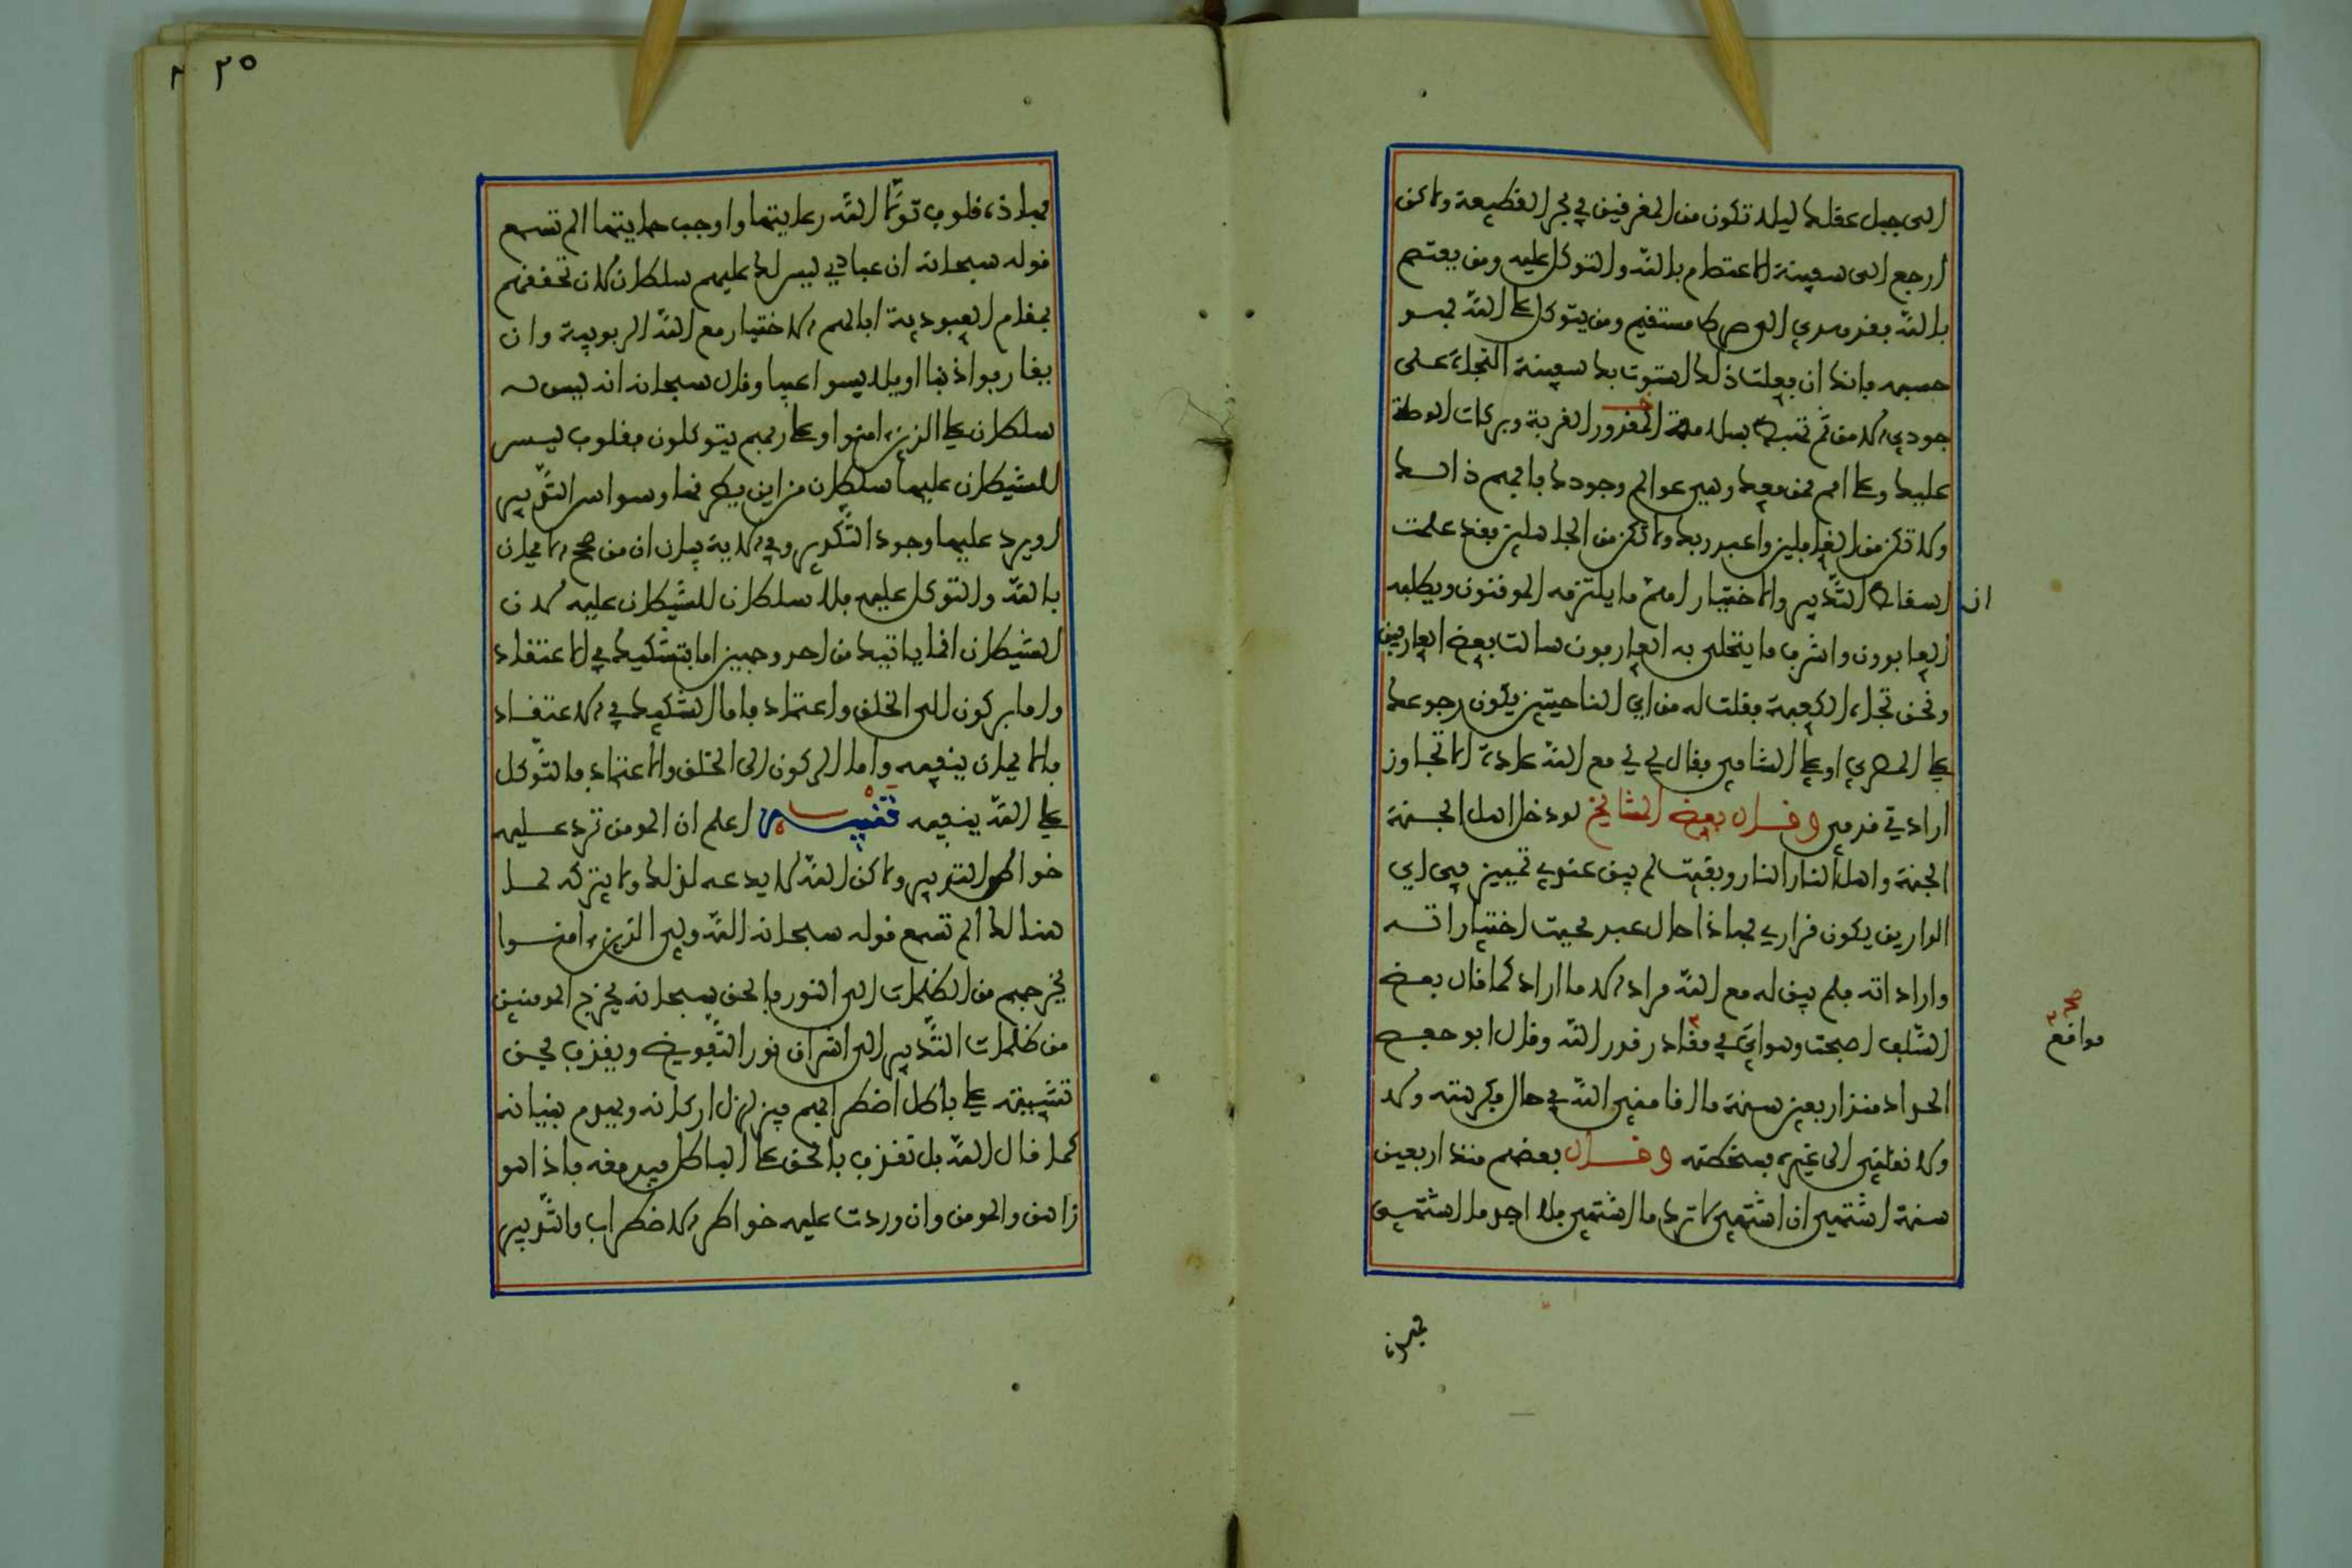 الى جبل عقلك ليلا تكون من المغرفين في بحر القطيعة ولاكن
ارجع الى سفينة الاعتصام بالله والتوكل عليه ومن يعتصم
بالله فقد هدي الى صراط مستقيم ومن يتوكل على الله فهو
حسبه فانك ان فعلت ذلك استوت بك سفينة النجاة على
جودي الامن ثم تهبط بسلامة القربة وبركات الوصلة
عليك وعلى امم ممن معك وهي عوالم وجودك فافهم ذالك
ولا تكن من الغافلين واعبد ربك ولا تكن من الجاهلين فقد علمت
ان اسقاط التدبير والاختيار اهم ما يلتزمه الموقنون ويطلبه
العابدون واشرف ما يتحلى به العارفون سالت بعض العارفين
ونحن تجاه الكعبة فقلت له من اي الناحيتين يكون رجوعك
على المصري او على الشامي فقال لي لي مع الله عادة الا تجاوز
ارادتي قدمي وقال بعض المشايخ لو دخل اهل الجنة
الجنة واهل النار النار وبقيت لم يبق عندي تمييز في اي
الدارين يكون قراري فهاذا حال عبد محيت اختياراته
واراداته فلم يبق له مع الله مراد الا ما اراد كما قال بعض
السلف اصبحت وهواي في مواقع قدر الله وقال ابو حفص
الحداد منذ اربعين سنة ما اقامني الله في حال فكرهته ولا
ولا نقلني الى غيره فسخطته وقال بعضهم منذ اربعين
سنة اشتهي ان اشتهي لاترك ما اشتهي فلا اجد ما اشتهي
صح
مواقع
فهذه
٢٥
فهاذه قلوب تولى الله رعايتها واوجب حمايتها الم تسمع
قوله سبحانه ان عبادي ليس لك عليهم سلطان لان تحققهم
بمقام العبودية ابا لهم الاختيار مع الله الربوبية وان
يقارفوا ذنبا او يلابسوا عيبا وقال سبحانه انه ليس له
سلطان على الذين امنوا وعلى ربهم يتوكلون فقلوب ليس
للشيطان عليها سلطان من اين يطرقها وسواس التدبير
او يرد عليها وجود التكدير وفي الاية بيان ان من صحح الايمان
بالله والتوكل عليه فلا سلطان للشيطان عليه لان
الشيطان انما ياتيك من احد وجهين اما بتشكيك في الاعتقاد
واما بركون الى الخلق واعتماد فاما التشكيك في الاعتقاد
فالايمان ينفيه واما الركون الى الخلق والاعتماد فالتوكل
على الله ينفيه تنبيه اعلم ان المومن ترد عليه
خواطر التدبير ولاكن الله لا يدعه لذلك ولا يتركه لما
هنالك الم تسمع قوله سبحانه الله ولي الذين امنوا
يخرجهم من الظلمات الى النور فالحق سبحانه يخرج المومنين
من ظلمات التدبير الى اشراق نور التفويض ويقذف بحق
تثبيته على باطل اضطرابهم فيزلزل اركانه ويهدم بنيانه
كما قال الله بل نقذف بالحق على الباطل فيدمغه فاذا هو
زاهق والمومن وان وردت عليه خواطر الاضطراب والتدبير